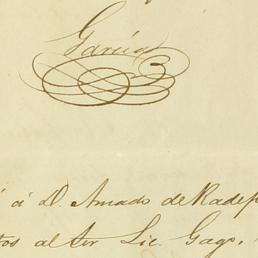 García
á D. Amado de Rade
al Sr Lic. Gago.